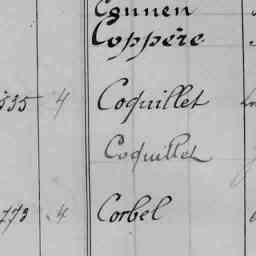 Coppère
535 4 Coquillet
Coquillet
773 4 Corbel